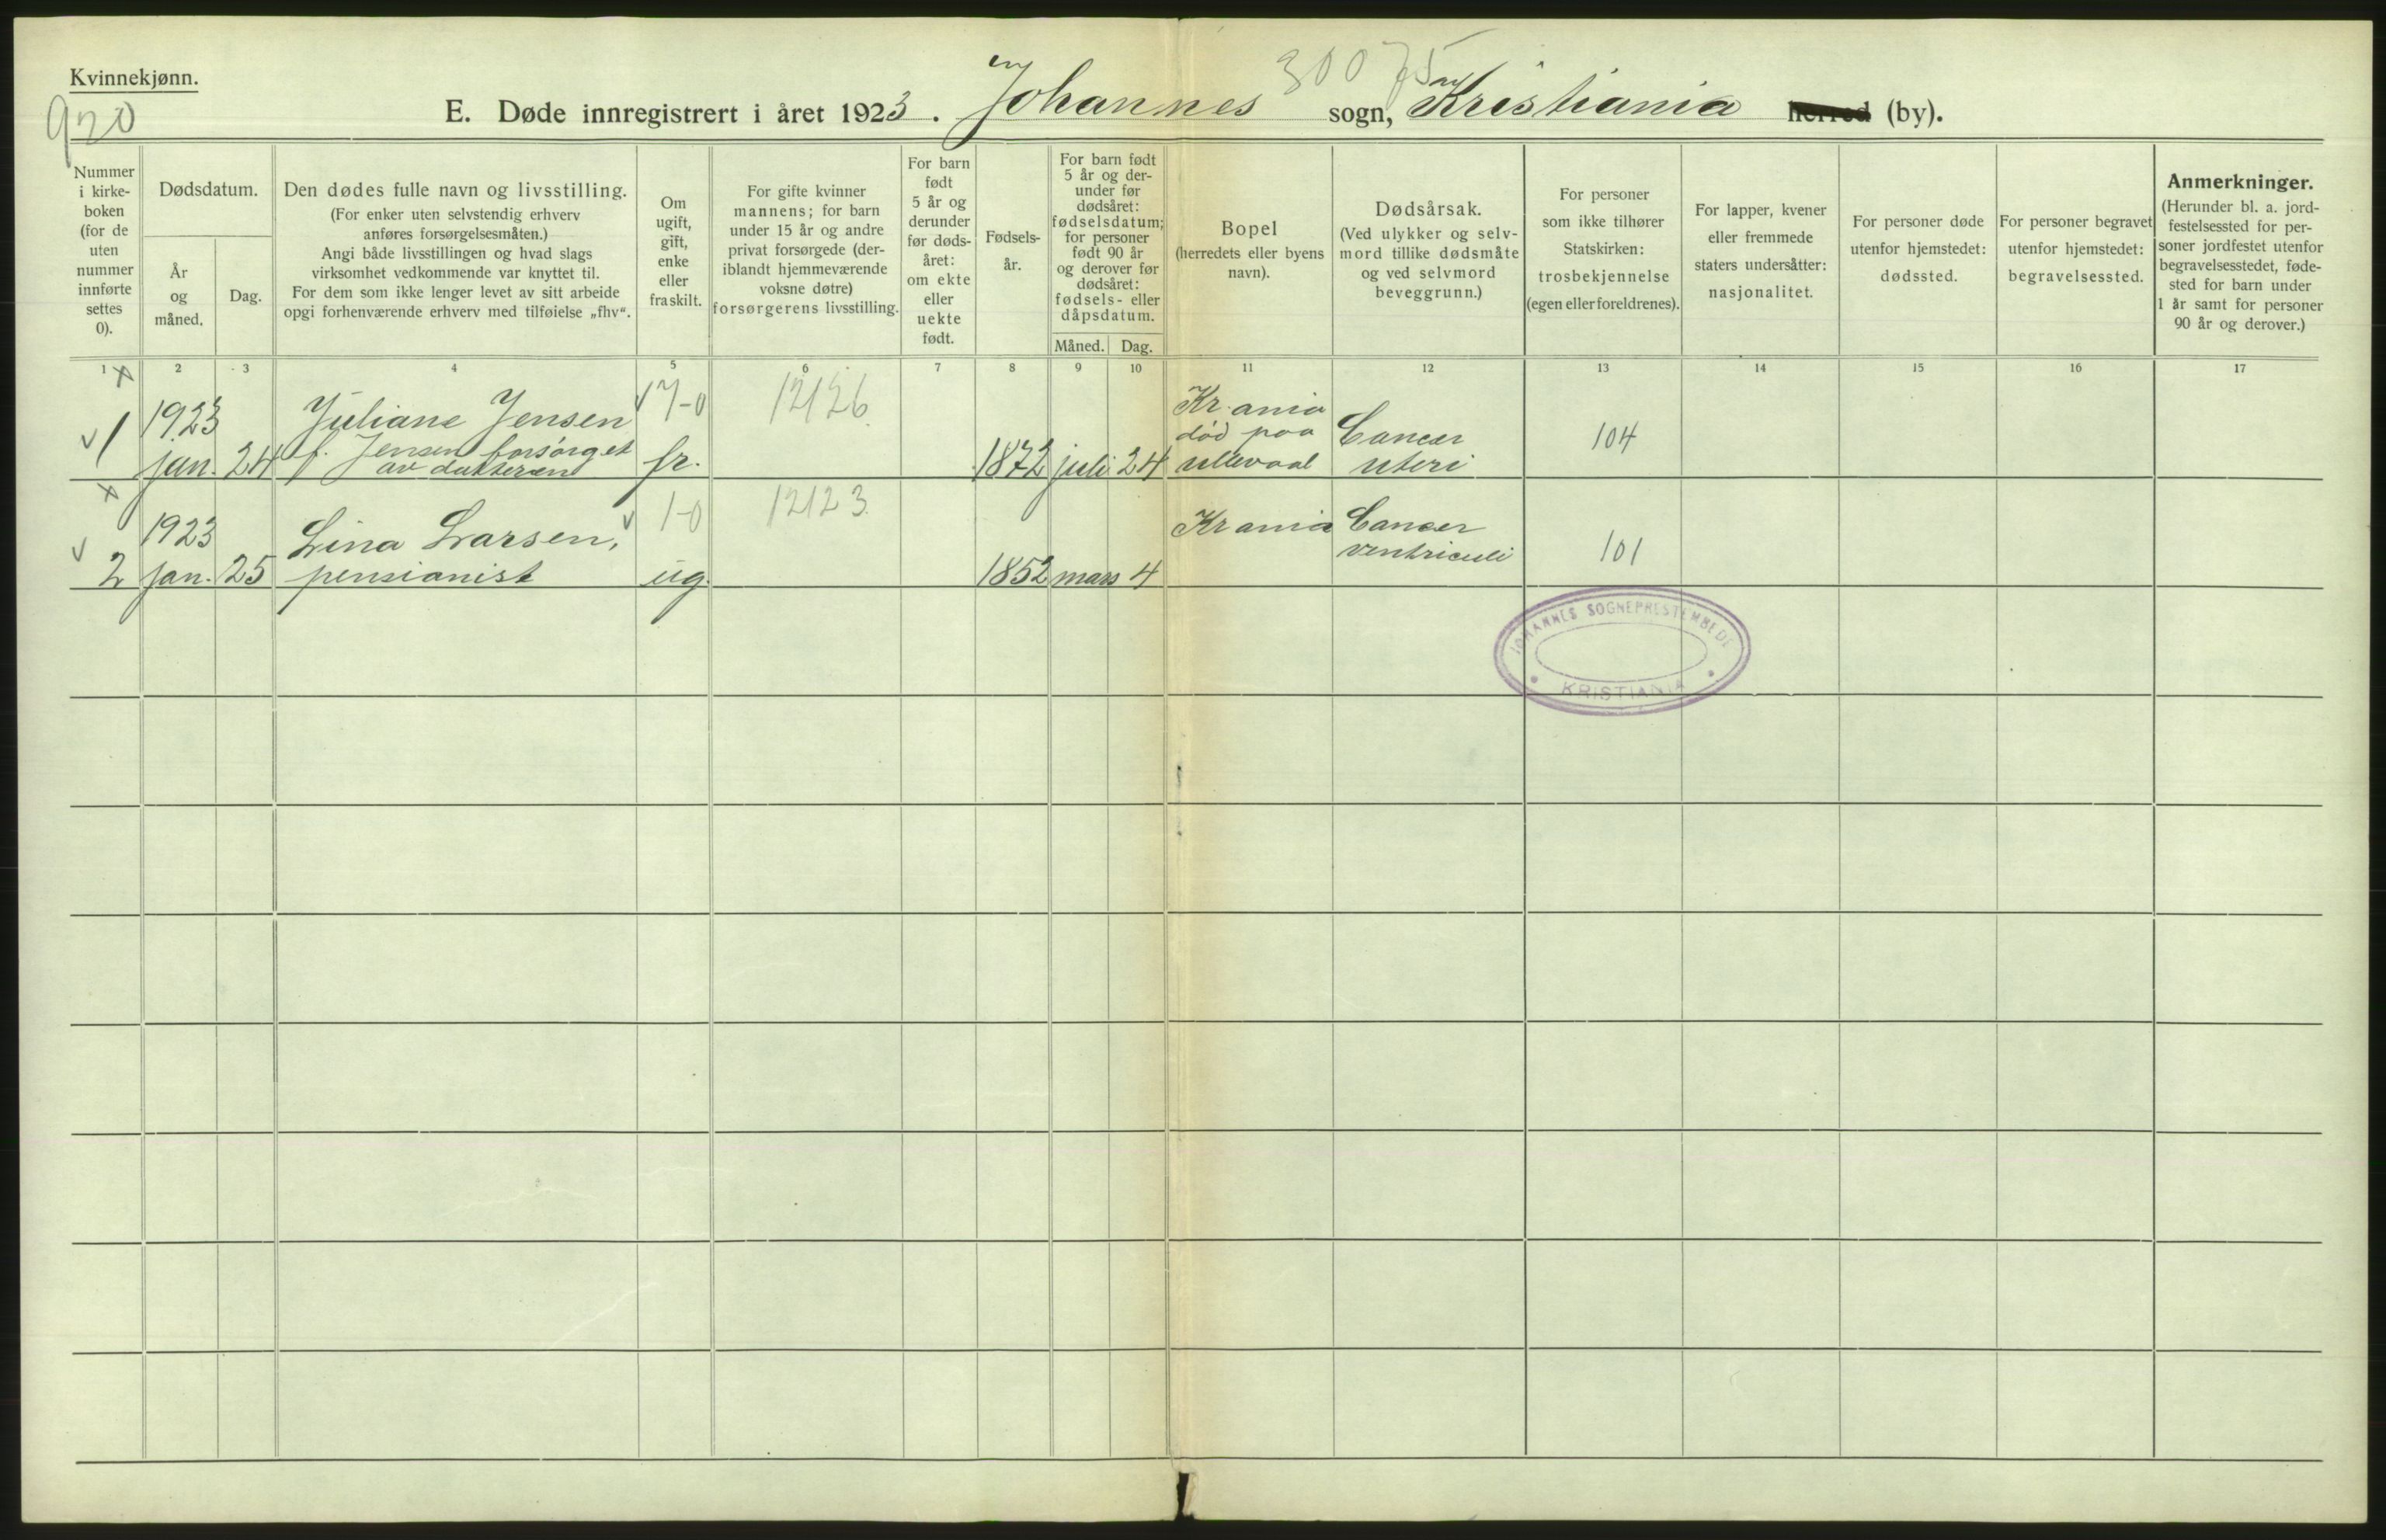 Kvinnekjønn.
920
30075
E. Døde innregistrert i året 1923. Johannes sogn, Kristiania herred (by).
Nummer
i kirke-
boken
(for de
uten
nummer
innførte
settes
0).
Dødsdatum.
År
og
måned.
Dag.
Den dødes fulle navn og livsstilling.
(For enker uten selvstendig erhverv
anføres forsørgelsesmåten.)
Angi både livsstillingen og hvad slags
virksomhet vedkommende var knyttet til.
For dem som ikke lenger levet av sitt arbeide
opgi forhenværende erhverv med tilføielse „fhv“.
Om
ugift,
gift,
enke
eller
fraskilt.
For gifte kvinner
mannens; for barn
under 15 år og andre
privat forsørgede (der-
iblandt hjemmeværende
voksne døtre)
forsørgerens livsstilling.
For barn
født
5 år og
derunder
før døds-
året:
om ekte
eller
uekte
født.
Fødsels-
år.
For barn født
5 år og der-
under før
dødsåret:
fødselsdatum;
for personer
født 90 år
og derover før
dødsåret:
fødsels- eller
dåpsdatum.
Måned. Dag.
Bopel
(herredets eller byens
navn).
Dødsårsak.
(Ved ulykker og selv-
mord tillike dødsmåte
og ved selvmord
beveggrunn.)
For personer
som ikke tilhører
Statskirken:
trosbekjennelse
(egen eller foreldrenes).
For lapper, kvener
eller fremmede
staters undersåtter:
nasjonalitet.
For personer døde
utenfor hjemstedet:
dødssted.
For personer begravet
utenfor hjemstedet:
begravelsessted.
Anmerkninger.
(Herunder bl. a. jord-
festelsessted for per-
soner jordfestet utenfor
begravelsesstedet, føde-
sted for barn under
1 år samt for personer
90 år og derover.)
1 2 3 4 5 6 7 8 9 10 11 12 13 14 15 16 17
1
1923
jan. 24
Juliane Jensen
f. Jensen forsørget
av datteren
7-0
fr.
12126
1872 juli 24
Kr.ania
död paa
Ullevaal
Cancer
uteri
104
2
1923
jan. 25
Lina Larsen,
pensionist
1-0
ug.
12123
1852 mars 4
Krania
Cancer
ventriculi
101
JOHANNES SOGNEPRESTEMBEDE
KRISTIANIA